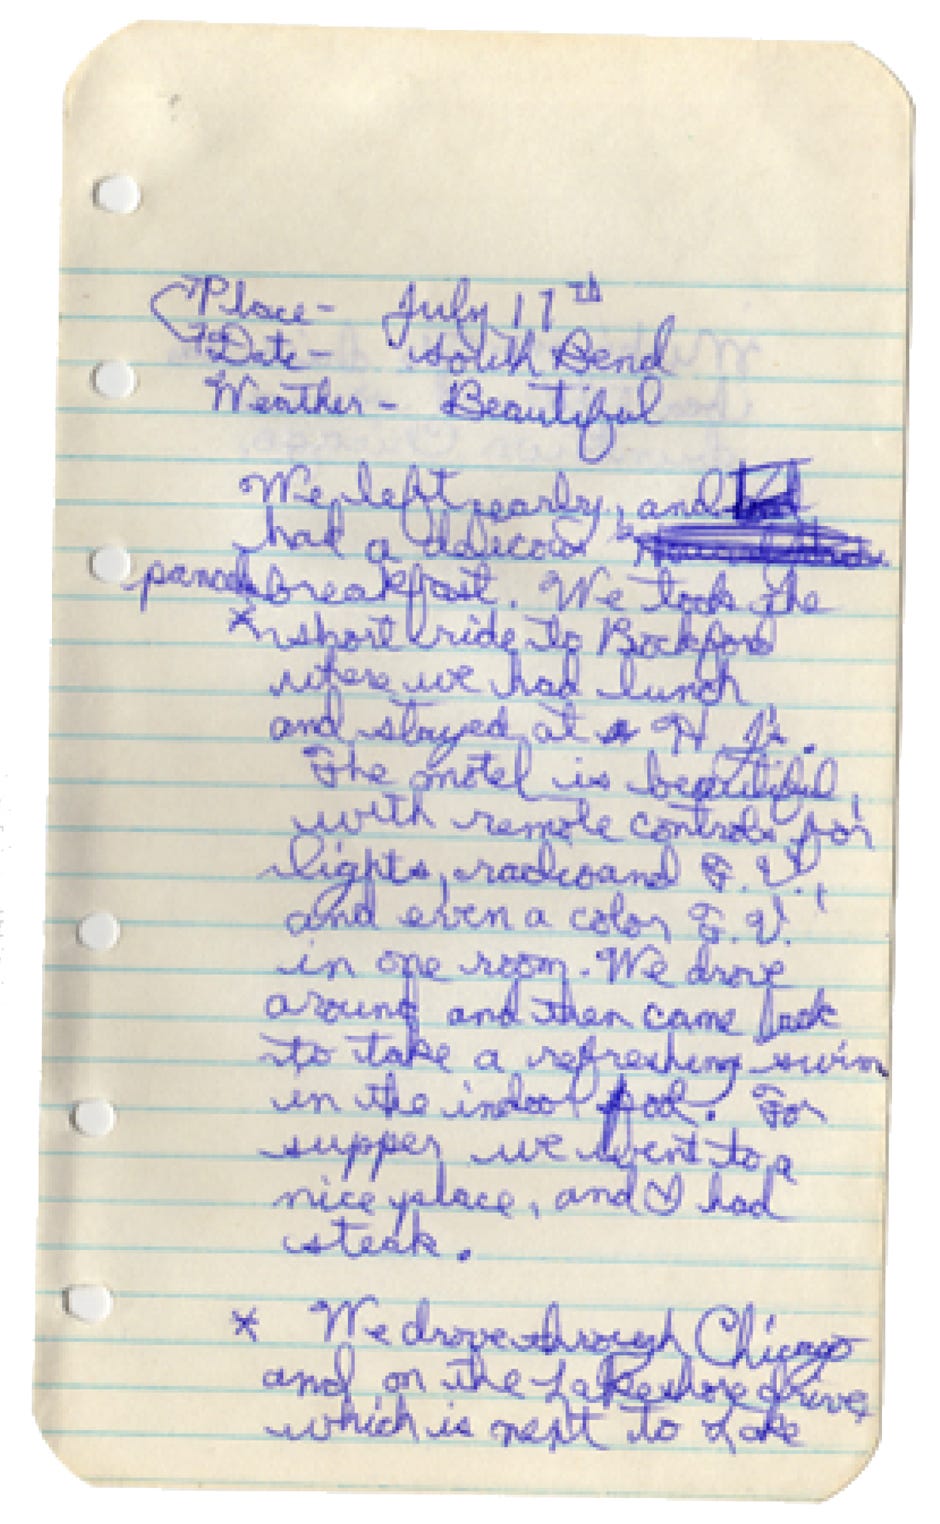 Place- July 17th
Date- South Bend
Weather- Beautiful
We left early, and
had a
pancake breakfast. We took the
* short ride to Rockford
where we had lunch
and stayed at H. J's.
The motel is beautiful,
with remote controls for
lights, radio and T.V.,
and even a color T.V.
in one room. We drove
around and then came back
to take a refreshing swim
in the indoor pool. For
supper we went to a
nice place, and I had
steak.
* We drove through Chicago
and on the Lakeshore drive,
which is next to Lake